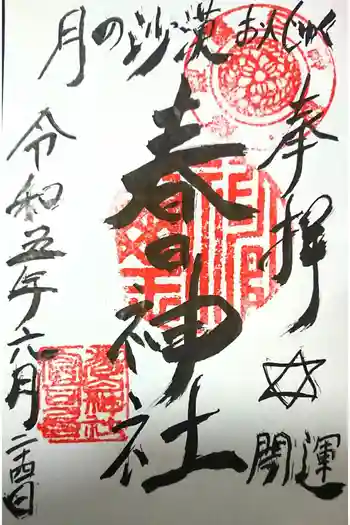 月の沙漠おんじゅく
奉拝
春日神社
開運
令和五年六月二十四日